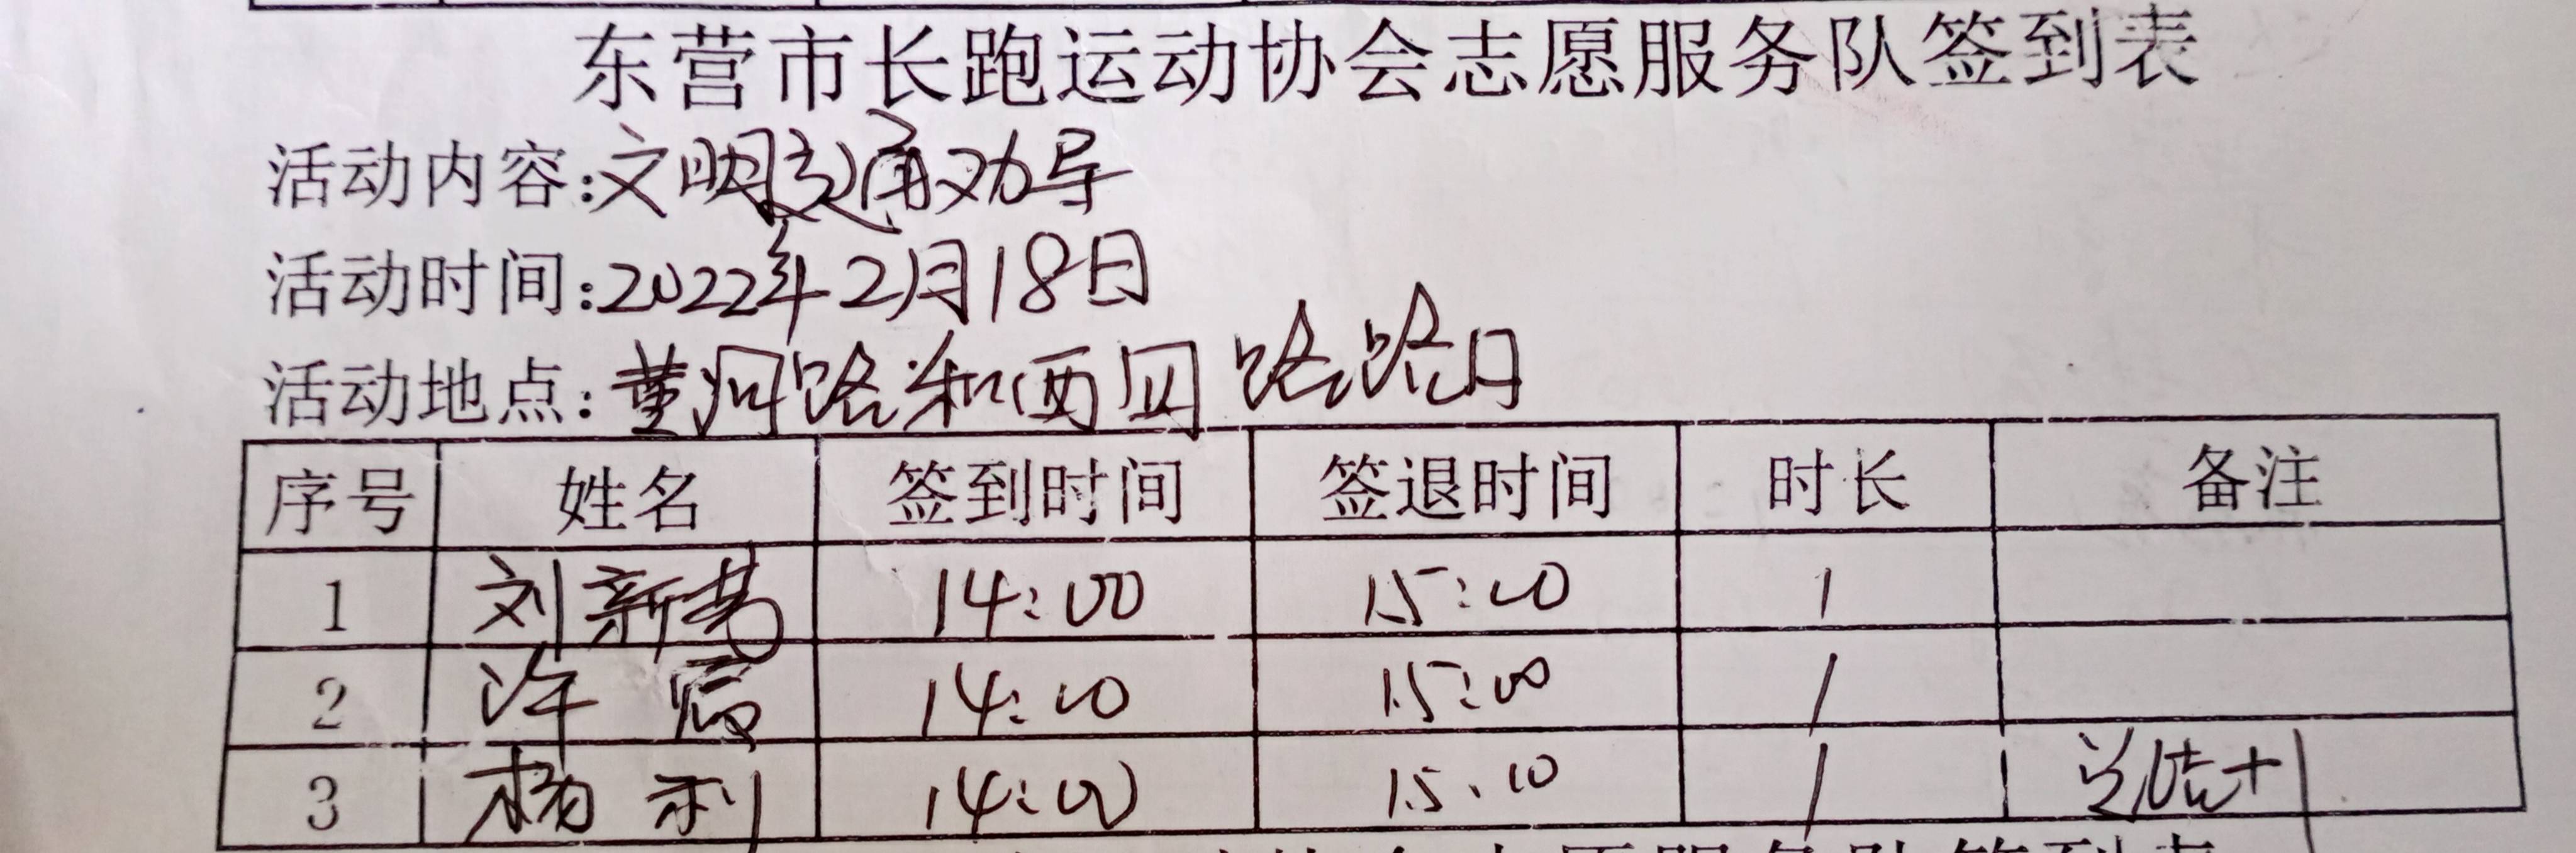 东营市长跑运动协会志愿服务队签到表
活动内容:文明交通劝导
活动时间:2022年2月18日
活动地点:黄河路和西四路路口
序号 姓名 签到时间 签退时间 时长 备注
1 刘新 14:00 15:00 1
2 许 14:00 15:00 1
3 杨利 14:00 15:00 1